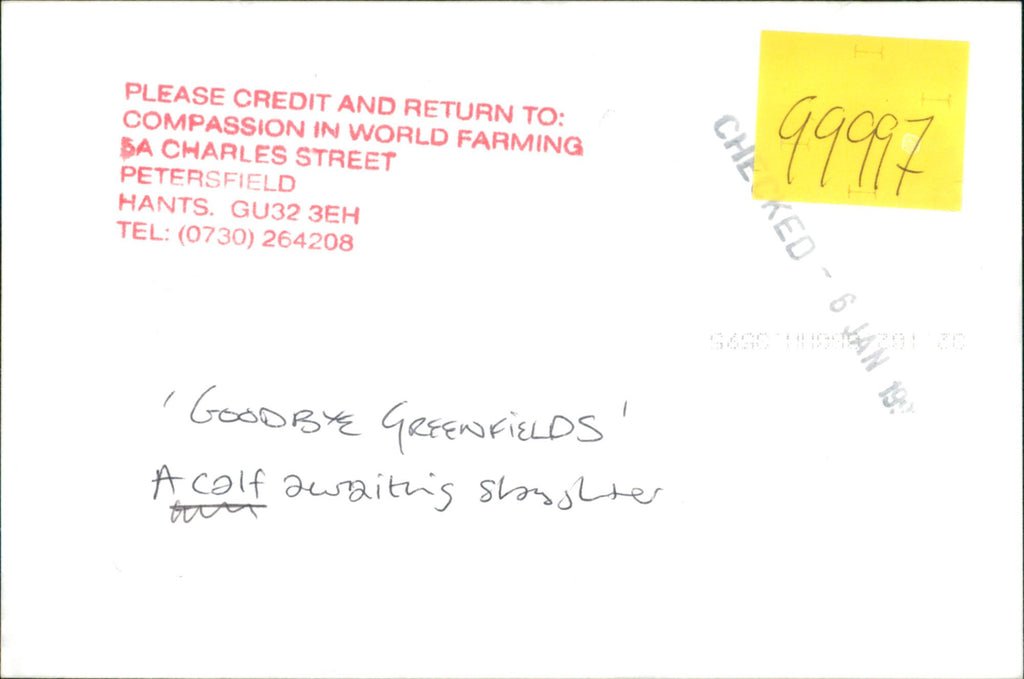 PLEASE CREDIT AND RETURN TO:
COMPASSION IN WORLD FARMING
5A CHARLES STREET
PETERSFIELD
HANTS. GU32 3EH
TEL: (0730) 264208
99997
CHECKED - 6 JAN 199
'GOODBYE GREENFIELDS'
A calf awaiting slaughter